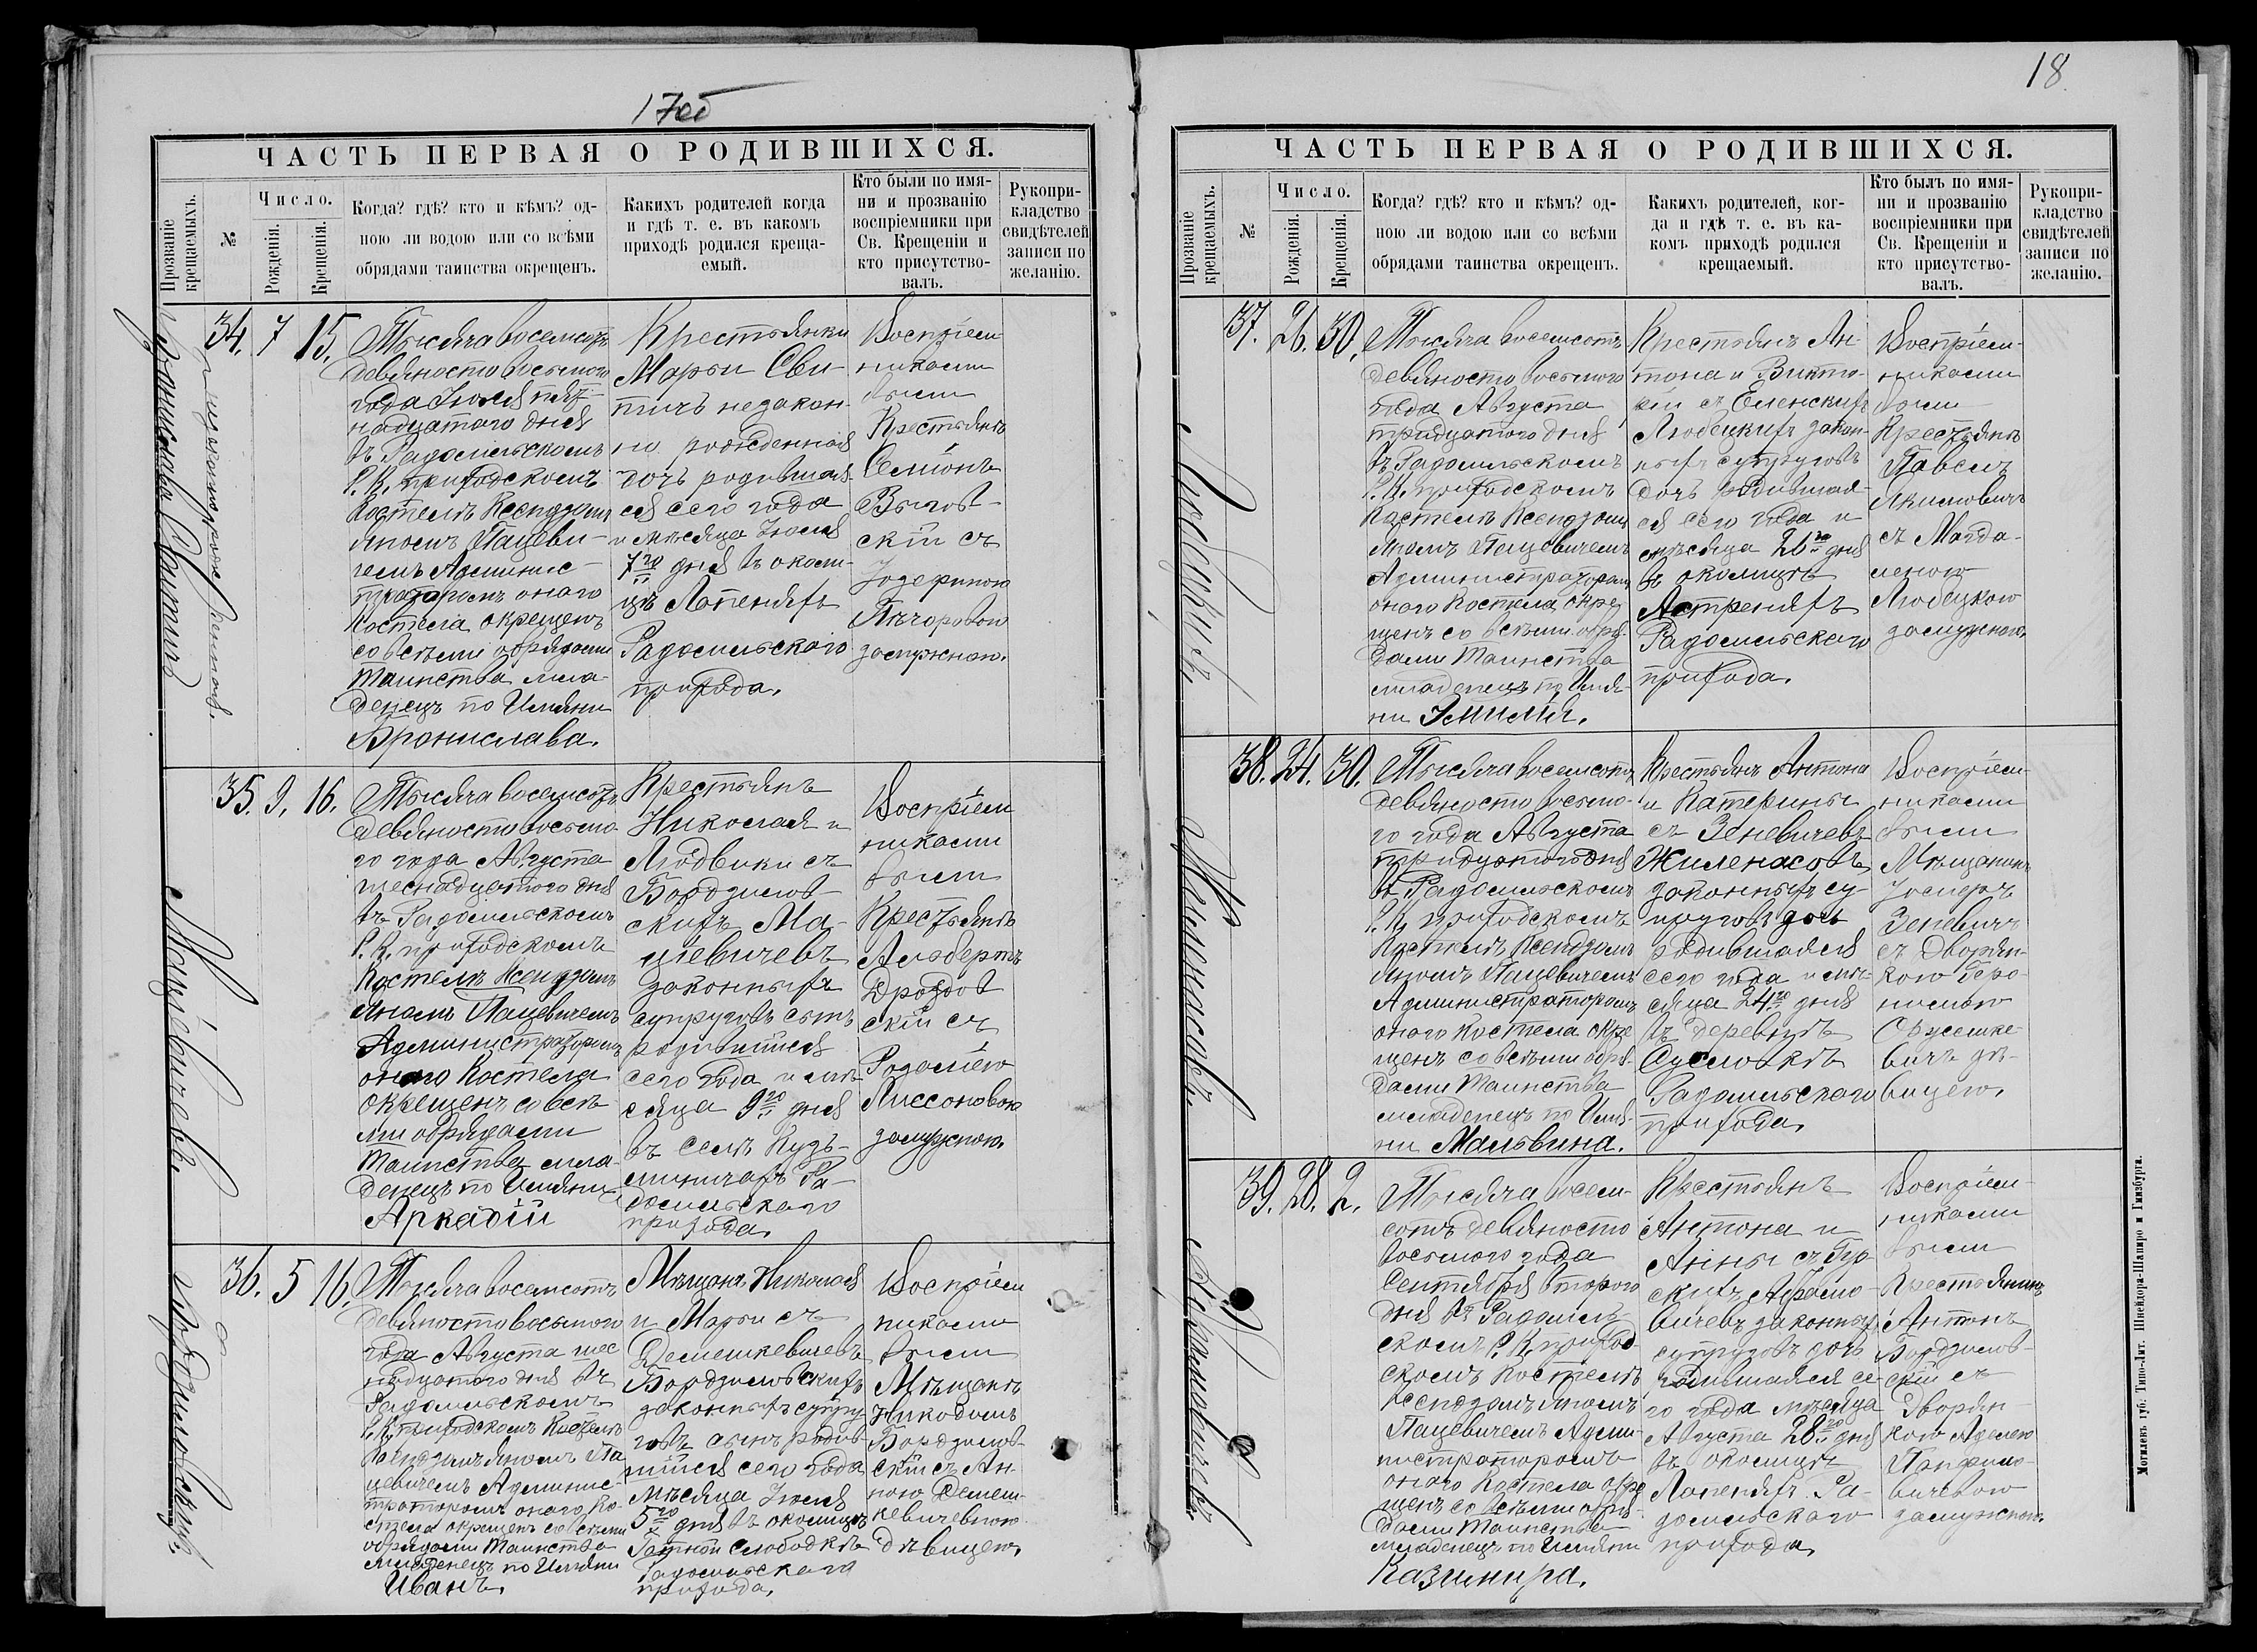 17об
ЧАСТЬ ПЕРВАЯ О РОДИВШИХСЯ.
Прозваніе крещаемыхъ.
№
Число.
Рожденія.
Крещенія.
Когда? гдѣ? кто и кѣмъ? од-
ною ли водою или со всѣми
обрядами таинства окрещенъ.
Какихъ родителей когда
и гдѣ т. е. въ какомъ
приходѣ родился креща-
емый.
Кто были по имя-
ни и прозванію
воспріемники при
Св. Крещеніи и
кто присутство-
валъ.
Рукопри-
кладство
свидѣтелей
записи по
желанію.
Бронислава Свитичъ
34. 7 15.
Тысяча восемсотъ
девяносто восьмого
года Іюля пят-
надцатого дня
въ Радомльскомъ
Р. К. приходскомъ
Костелѣ Ксендзомъ
Яномъ Пацеви-
чемъ Админис-
траторомъ оного
Костела окрещенъ
со всѣми обрядами
Таинства мла-
денецъ по Имяни
Бронислава.
Крестьянки
Марьи Сви-
тичъ незакон-
но рожденная
дочь родившая-
ся сего года
и мѣсяца Іюля
7го дня въ околи-
цѣ Лапеняхъ
Радомльского
прихода.
Воспріем
никами
были
Крестьянъ
Семіонъ
Выгов-
скій съ
замужною.
Маціевичевъ.
35. 9. 16.
Тысяча восемсотъ
девяносто восьмо
го года Августа
шеснадцатого дня
въ Радомльскомъ
Р. К. приходскомъ
Костелѣ Ксендзомъ
Яномъ Пацевичемъ
Администраторомъ
оного Костела
окрещенъ со всѣ
ми обрядами
Таинства мла-
денецъ по Имяни
Аркадій
Крестьянъ
Николая и
Людвики съ
Бордзилов-
скихъ Ма-
ціевичевъ
законныхъ
супруговъ сынъ
родившійся
сего года и мѣ-
сяца 9го дня
въ селѣ Кузь-
миничахъ Ра-
домльского
прихода.
Воспріем
никами
были
Крестьянъ
Альбертъ
Дроздов
скій съ
Лиссоновою
замужною.
Бордзиловскихъ.
36. 5 16.
Тысяча восемсотъ
девяносто восьмого
года Августа шес
надцатого дня въ
Радомльскомъ
Р. К. приходскомъ Костелѣ
Ксендзомъ Яномъ Па
цевичемъ Админис-
траторомъ оного Ко-
стела окрещенъ со всѣми
обрядами Таинства
младенецъ по Имяни
Иванъ.
Мѣщанъ Николая
и Марьи съ
Демешкевичевъ
Бордзиловскихъ
законныхъ супру
говъ сынъ родив-
шійся сего года
мѣсяца Іюля
5го дня въ околицѣ
Слободкѣ
Радомльского
прихода.
Воспріем
никами
были
Мѣщанъ
Никодимъ
Бордзилов-
скій съ Ан-
ною Демеш-
кевичевною
дѣвицею.
18.
ЧАСТЬ ПЕРВАЯ О РОДИВШИХСЯ.
Прозваніе крещаемыхъ.
№
Число.
Рожденія.
Крещенія.
Когда? гдѣ? кто и кѣмъ? од-
ною ли водою или со всѣми
обрядами таинства окрещенъ.
Какихъ родителей, ког-
да и гдѣ т. е. въ ка-
комъ приходѣ родился
крещаемый.
Кто былъ по имя-
ни и прозванію
воспріемники при
Св. Крещеніи и
кто присутство-
валъ.
Рукопри-
кладство
свидѣтелей
записи по
желанію.
Любецкихъ
37. 26. 30.
Тысяча восемсотъ
девяносто восьмого
года Августа
тридцатого дня
въ Радомльскомъ
Р. К. приходскомъ
Костелѣ Ксендзомъ
Яномъ Пацевичемъ
Администраторомъ
оного Костела окре
щенъ со всѣми обря-
дами Таинства
младенецъ по Имя-
ни Эмилія.
Крестьянъ Ан-
тона и Викто-
ріи съ Еленскихъ
Любецкихъ закон-
ныхъ супруговъ
дочь родившая-
ся сего года и
мѣсяца 26го дня
въ околицѣ
Астреняхъ
Радомльского
прихода.
Воспріем-
никами
были
Крестьянъ
Павелъ
Якимовичъ
съ Магда-
леною
Любецкою
замужною.
Жиленасовъ.
38. 24. 30.
Тысяча восемсотъ
девяносто восьмо-
го года Августа
тридцатого дня
въ Радомльскомъ
Р. К. приходскомъ
Костелѣ Ксендзомъ
Яномъ Пацевичемъ
Администраторомъ
оного Костела окре
щенъ со всѣми обря-
дами Таинства
младенецъ по Имя-
ни Мальвина.
Крестьянъ Антона
и Катерины
съ Зеневичевъ
Жиленасовъ
законныхъ су-
пруговъ дочь
родившаяся
сего года и мѣ-
сяца 24го дня
въ деревнѣ
Сусловкѣ
Радомльского
прихода.
Воспріем-
никами
были
Мѣщанинъ
Іосифъ
Зеневичъ
съ Дворян-
кою Геро-
нимою
дѣ-
вицею.
Абрамовичевъ
39. 28. 2.
Тысяча восем-
сотъ девяносто
восьмого года
Сентября второго
дня въ Радомль-
скомъ Р. К. приход-
скомъ Костелѣ
Ксендзомъ Яномъ
Пацевичемъ Адми-
нистраторомъ
оного Костела окре
щенъ со всѣми обря-
дами Таинства
младенецъ по Имяни
Казимира.
Крестьянъ
Антона и
Анны съ Гур
скихъ Абрамо-
вичевъ законныхъ
супруговъ дочь
родившаяся се-
го года мѣсяца
Августа 28го дня
въ околицѣ
Лапеняхъ Ра-
домльского
прихода.
Воспріем-
никами
были
Крестьянинъ
Антонъ
Бордзилов-
скій съ
Дворян-
кою Аделею
Панфило-
вичевою
замужною.
Могилевъ губ. Типо-Лит. Шнейдора-Шапиро и Гинзбурга.